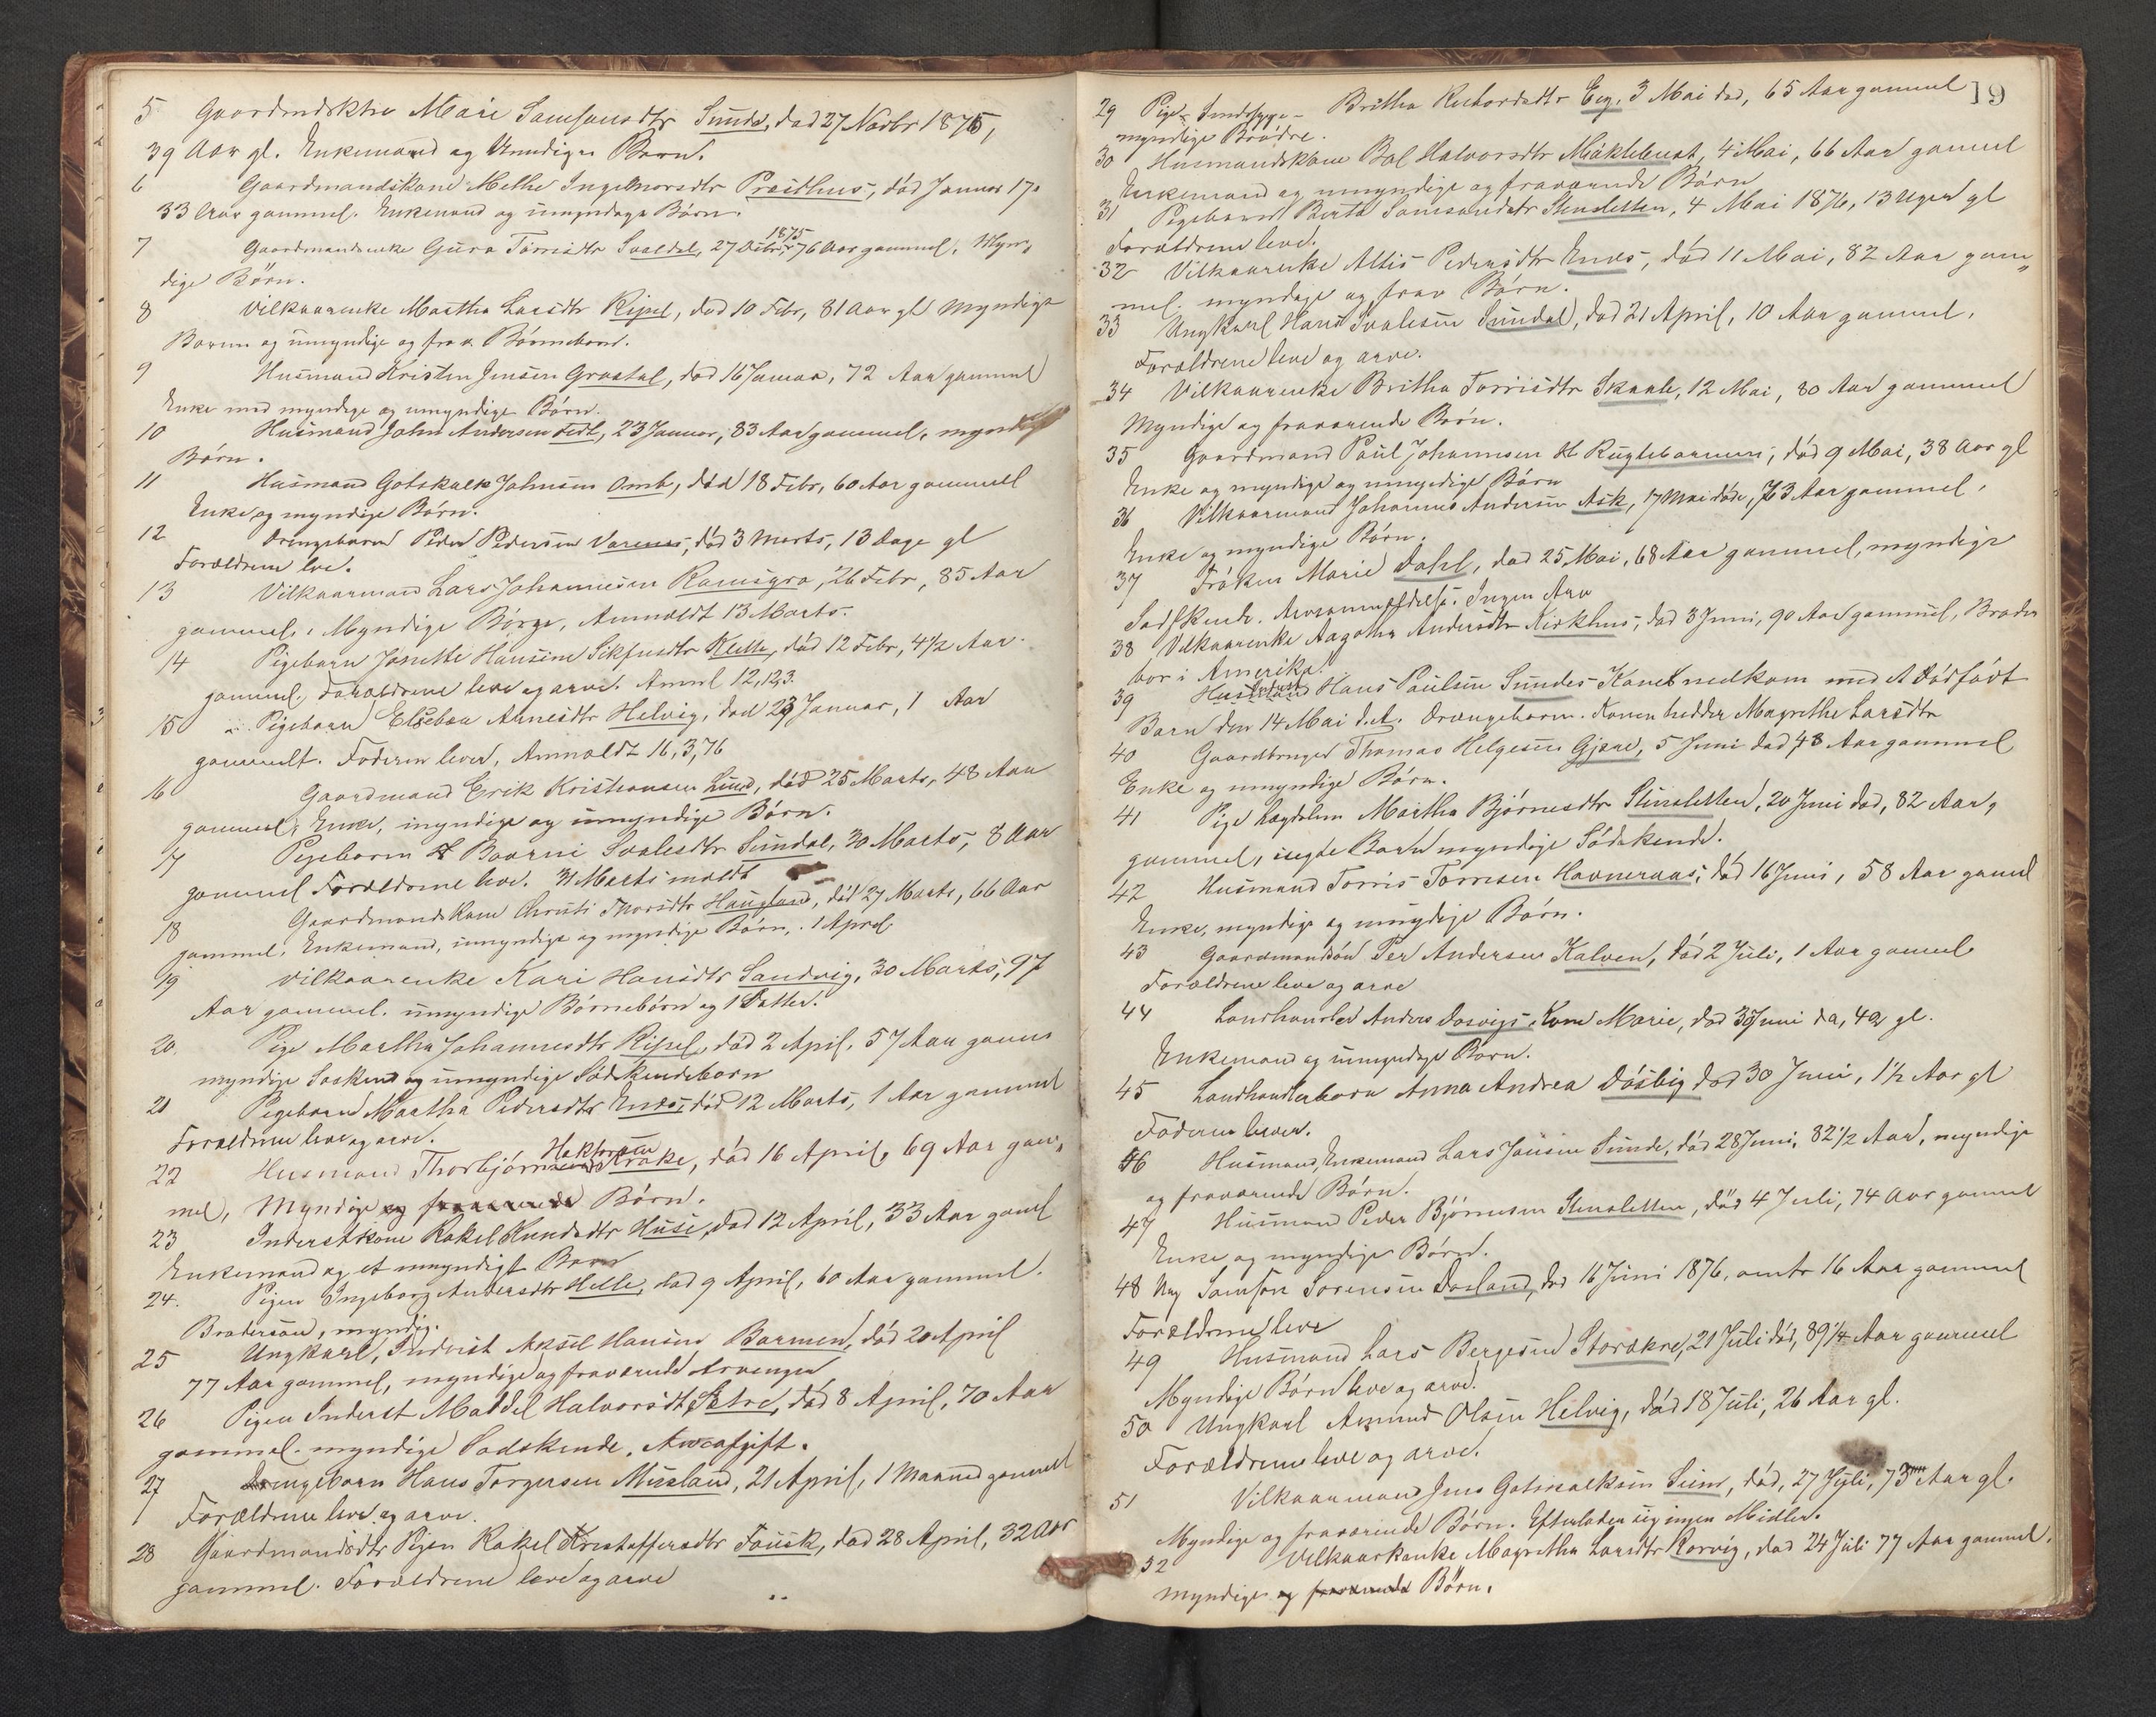 5 Gaardmdsktre Mari Samsonsdtr Sunde, død 27 Novbr 1875,
39 Aar gl. Enkemand og Umndige Børn.
6 Gaardmandskone Methe Ingebrorsdtr Præsthus, død Januar 17.
33 Aar gammel. Enkemand og umyndige Børn.
7 Gaardmandsenke Guro Torrisdtr Svaldal, 27 Octbr, 1875 76 Aar gammel, Myn„
dige Börn.
8 Vilkaarenke Martha Larsdtr Ripel, død 10 Febr, 81 Aar gl Myndige
Børn og umyndige og frav. Börnebørn.
9 Husmand Kristen Jensen Grastøl, død 16 Januar, 72 Aar gammel
Enke med myndige og umyndige Börn.
10 Husmand John Andersen Fedt, 23 Januar, 83 Aar gammel, myndige
Börn.
11 Husmand Gotskalk Johnsen Omb, död 18 Febr, 60 Aar gammel
Enke og myndige Børn.
12 Drengebarn Peder Pedersen Varenes, död 3 Marts, 13 Dage gl
Forældrene leve.
13 Vilkaarmand Lars Johannesen Ramsgro, 26 Febr, 85 Aar
gammel, Myndige Börn, Anmeldt 13 Marts.
14 Pigebarn Jonette Hansine Sikfusdtr Klette, död 12 Febr, 4½ Aar
gammel, Forældrene leve og arve. Anml 12,12,3.
15 Pigebarn Elsebea Arnesdtr Helvig, död 23 Januar, 1 Aar
gammelt. Faderen lever, Anmeldt 16,3,76
16 Gaardmand Erik Kristensen Lund, död 25 Marts, 48 Aar
gammel, Enke, myndige og umyndige Børn.
17 Pigebarn Baarni Svalesdtr Sundal, 30 Marts, 8 Aar
gammel Forældrene leve. 31 Marts meldt
18 Gaardmandskone Christi Thorsdtr Haugland, död 27 Marts, 66 Aar
gammel, Enkemand, umyndige og myndige Börn, 1 April
19 Vilkaarenke Kari Hansdtr Sandvig, 30 Marts, 97
Aar gammel. umyndige Börnebörn og 1 Datter.
20. Pige Martha Johannesdtr Ripel, död 2 April, 57 Aar gamml
myndige Søskend og umyndige Södskendebørn
21 Pigebarn Martha Pedersdtr Enes, död 12 Marts, 1 Aar gammel
Forældrene leve og arve.
22 Husmand Thorbjörn Krake, död 16 April, 69 Aar gam„
mel, Myndige og fraværende Börn.
23 Inderstkone Rakel Knudsdtr Huse, död 12 April, 33 Aar gaml
Enkemand og et umyndigt Barn
24. Pigen Ingeborg Andersdtr Hille, död 9 April, 60 Aar gammel.
Brodersøn, myndig.
25 Ungkarl, Inderst Aksel Hansen Barmen, död 20 April
77 Aar gammel, myndige og fraværende Arvinger
26 Pigen Inderst Maldel Halvorsdtr Sætre, död 8 April, 70 Aar
gammel. myndige Sødskende. Arveafgift.
27 Drengebarn Hans Torgersen Musland, 21 April, 1 Maaned gammel
Forældrene leve og arve.
28 Gaardmandsdtr Pigen Rakel Kristoffersdtr Fousk, död 28 April, 32 Aar
gammel. Forældrene leve og arve
19
29 Pige Sindssyge - Britha Richardsdtr Eeg, 3 Mai död, 65 Aar gammel
myndige Brødre.
30 Husmandskone Bol Halvorsdtr Mäklebust, 4 Mai, 66 Aar gammel
Enkemand og umyndige og fraværende Börn
31 Pigebarn Berta Samsonsdatr Stensletten, 4 Mai 1876, 13 Uger gl
Forældrene leve.
32 Vilkaarenke Altis Pedersdtr Enes, död 11 Mai, 82 Aar gam„
mel. myndige og frav Börn.
33 Ungkarl Hans Svalesen Sundal, död 21 April, 10 Aar gammel,
Forældrene leve og arve.
34 Vilkaarenke Britha Torrisdtr Skaale, 12 Mai, 80 Aar gammel
Myndige og fraværende Börn.
35 Gaardmand Paul Johannesen Rugtebarmen, död 9 Mai, 38 Aar gl
Enke og myndige og umyndige Börn
36 Vilkaarmand Johannes Andersen Ask, 17 Mai död, 73 Aar gammel,
Enke og myndige Börn.
37 Fröken Marie Dahl, död 25 Mai, 68 Aar gammel, myndige
Sødskende. Ingen Arv
38 Vilkaarenke Aagotha Andersdtr Kirkhus, död 3 Juni, 90 Aar gammel, Broder
bor i Amerika.
39 Husmand Hans Paulsen Sundes Kone nedkom med et dödfödt
Barn den 14 Mai d.A. Drængebarn. Konen hedder Magrethe Larsdtr
40 Gaardbruger Thomas Helgesen Gjerde, 5 Juni död 48 Aar gammel
Enke og umyndige Börn.
41 Pige Lægdslem Martha Björnesdtr Stensletten, 20 Juni död, 82 Aar
gammel, uegte Barn myndige Södskende.
42 Husmand Torris Torrisen Havneraas, död 16 Juni, 58 Aar gaml
Enke, myndige og umyndige Börn.
43 Gaardmandsön Per Andersen Kalven, död 2 Juli, 1 Aar gammel
Forældrene leve og arve
44 Landhandler Anders Døsvigs Kone Marie, död 30 Juni da, 42 gl.
Enkemand og umyndige Börn.
45 Landhandlerbarn Anna Andrea Døsvig död 30 Juni, 1½ Aar gl
Faderen lever.
46 Husmand, Enkemand Lars Jansen Sunde, död 28 Juni, 82½ Aar, myndige
og fraværende Börn.
47 Husmand Peder Björnesen Stensletten, död 4 Juli, 74 Aar gammel
Enke og myndige Börn.
48 Ung Samson Sorensen Døsland, död 16 Juni 1876, omtr 16 Aar gammel
Forældrene leve
49 Husmand Lars Bergesen Storøkre, 21 Juli död, 89¼ Aar gammel
Myndige Börn leve og arve.
50 Ungkarl Asmund Olsen Helvig, död 18 Juli, 26 Aar gl.
Forældrene leve og arve.
51 Vilkaarmand Jens Gotskalksen Sunde, död, 27 Juli, 73 Aar gl.
Myndige og fraværende Börn. Efterlader sig ingen Midler.
52 Vilkaarkenke Magretha Larsdtr Rørvig, död 24 Juli 77 Aar gammel.
myndige og fraværende Börn.